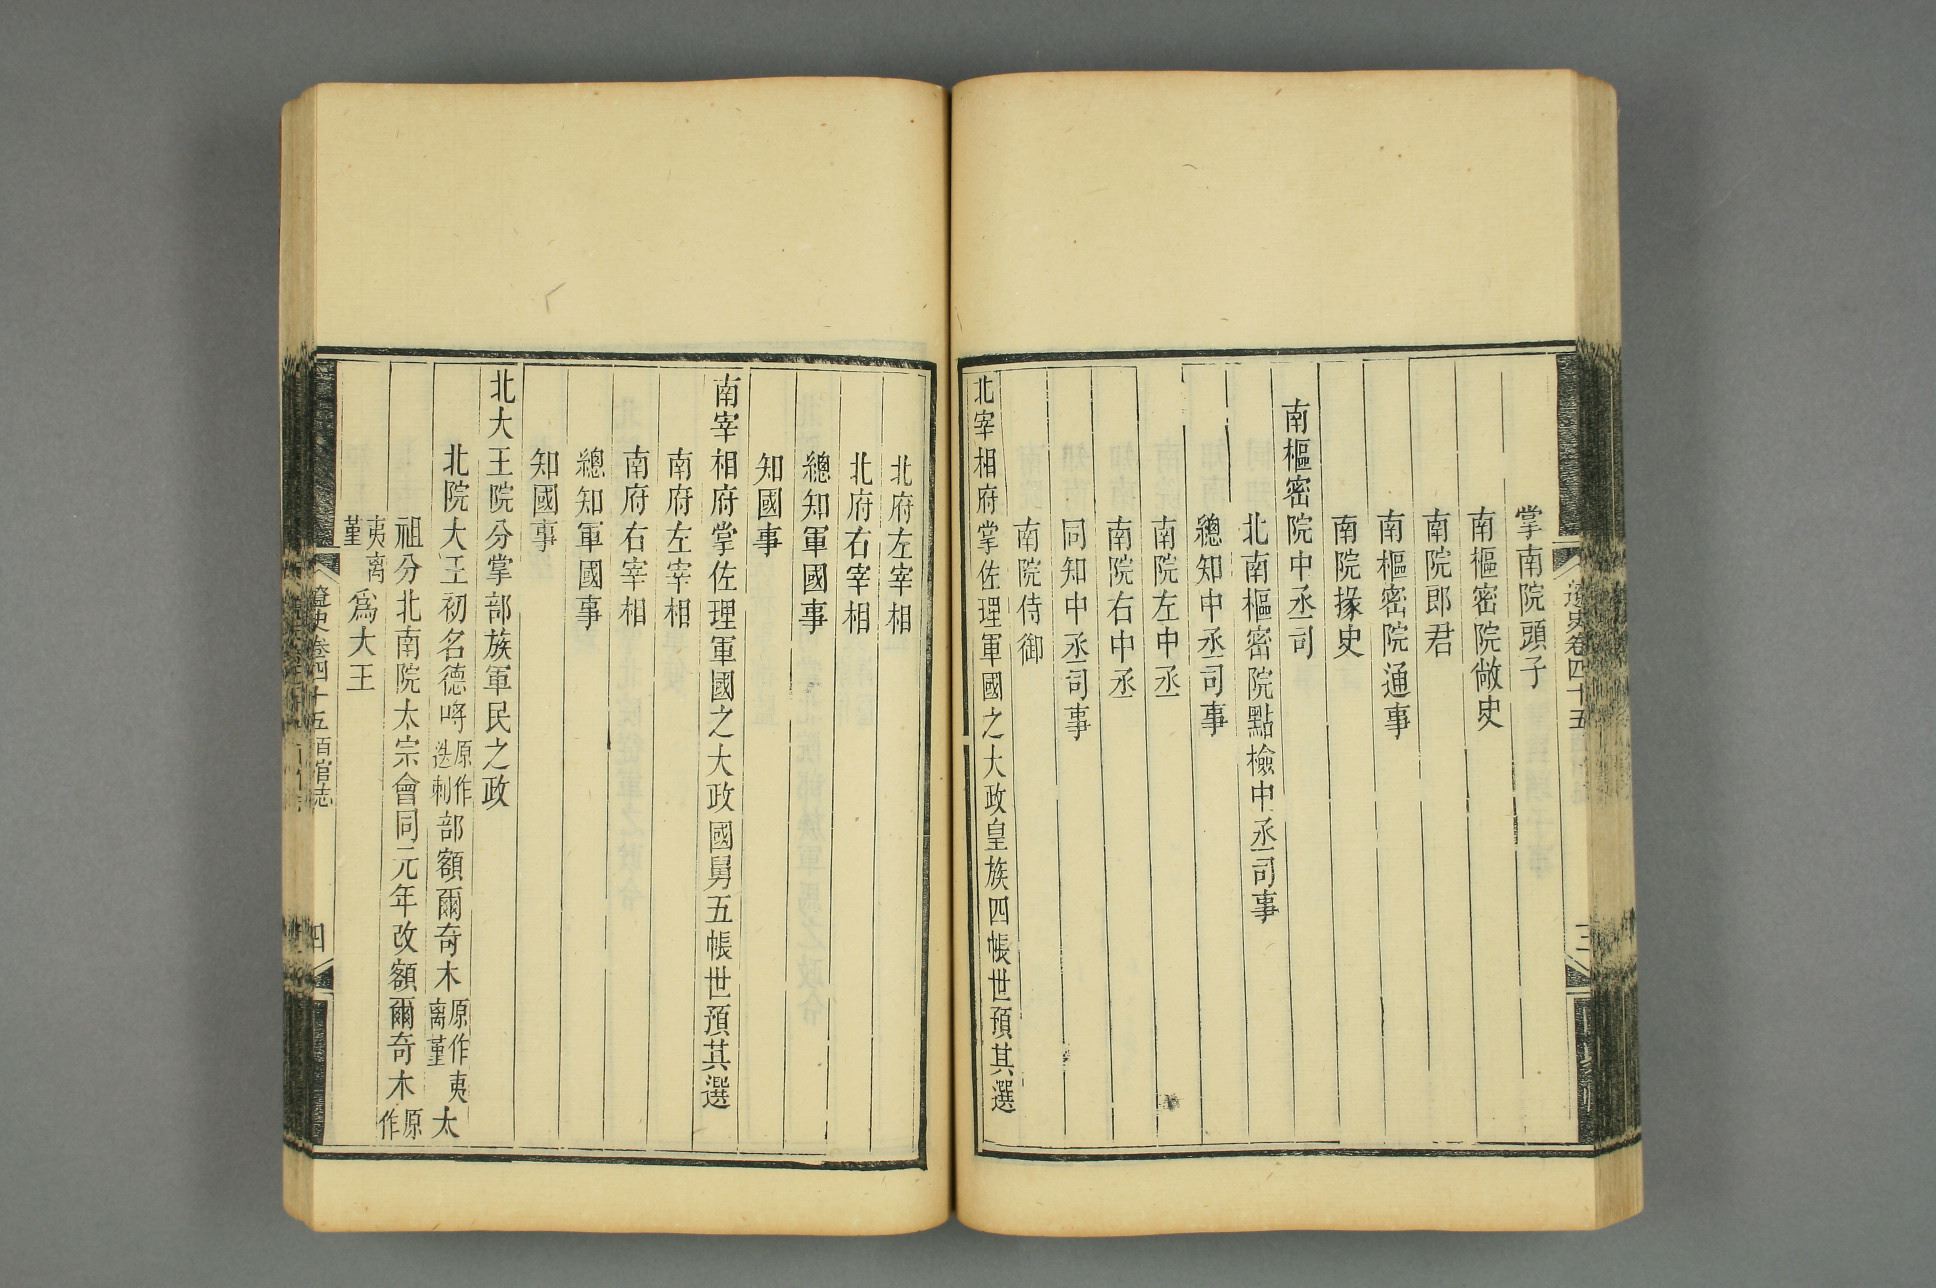 遼史卷四十五
三
掌南院頭子
南樞密院敞史
南院郎君
南樞密院通事
南院掾史
南樞密院中丞司
北南樞密院點檢中丞司事
總知中丞司事
南院左中丞
南院右中丞
同知中丞司事
南院侍御
北宰相府掌佐理軍國之大政皇族四帳世預其選
北府左宰相
北府右宰相
總知軍國事
知國事
南宰相府掌佐理軍國之大政國舅五帳世預其選
南府左宰相
南府右宰相
總知軍國事
知國事
北大王院分掌部族軍民之政
北院大王初名德哷原作迭剌部額爾奇木原作夷离堇太
祖分北南院太宗會同元年改額爾奇木原作
夷离堇為大王
遼史卷四十五百官志
四